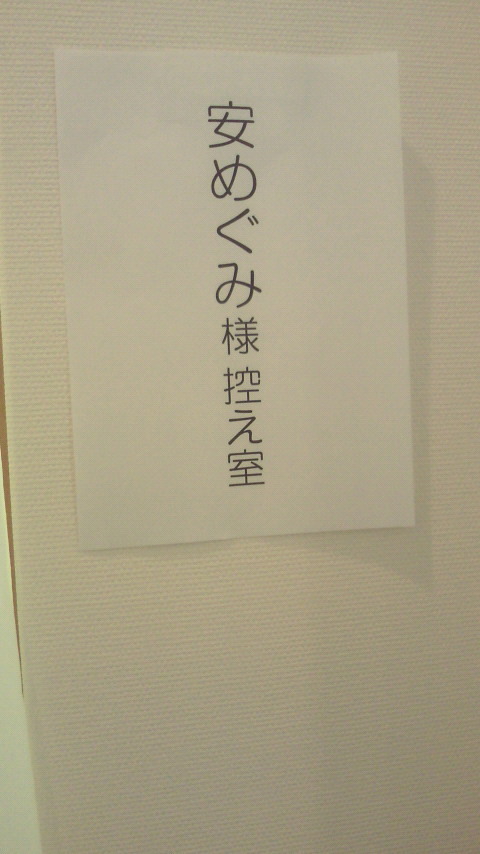 安めぐみ様控え室